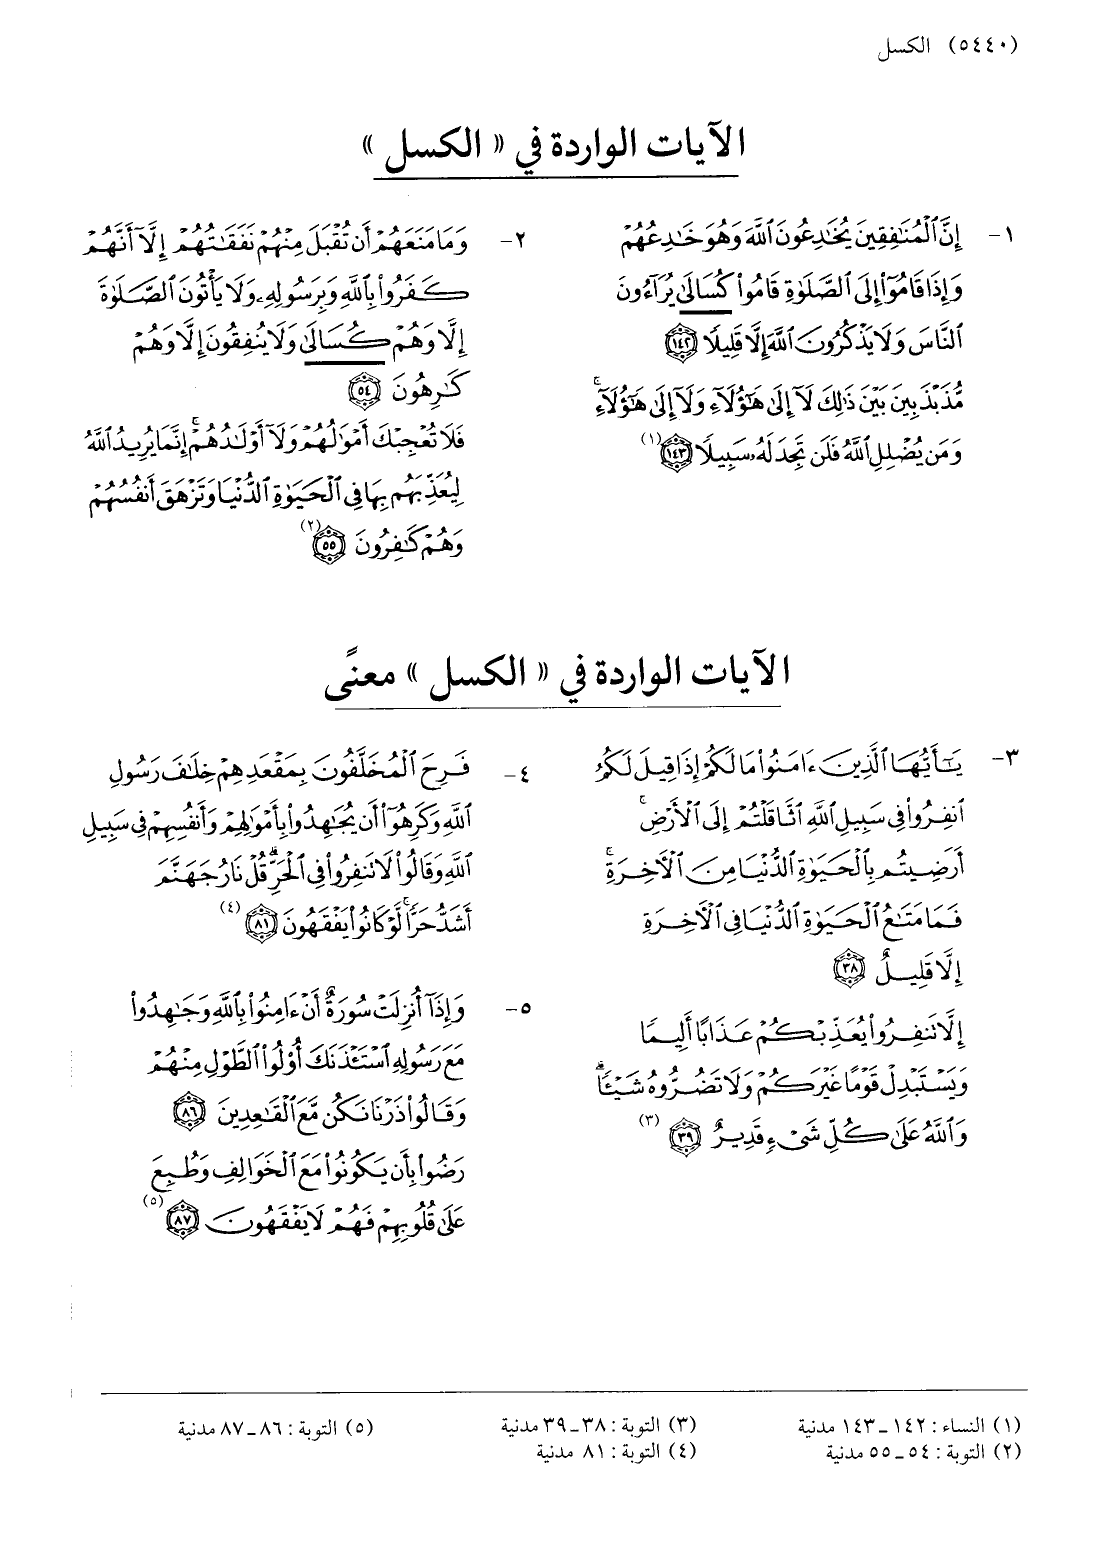 (٥٤٤٠) الكسل
الآيات الواردة في « الكسل »
١- إِنَّ ٱلْمُنَٰفِقِينَ يُخَٰدِعُونَ ٱللَّهَ وَهُوَ خَٰدِعُهُمْ
وَإِذَا قَامُوٓا۟ إِلَى ٱلصَّلَوٰةِ قَامُوا۟ كُسَالَىٰ يُرَآءُونَ
ٱلنَّاسَ وَلَا يَذْكُرُونَ ٱللَّهَ إِلَّا قَلِيلًا ١٤٢
مُّذَبْذَبِينَ بَيْنَ ذَٰلِكَ لَآ إِلَىٰ هَٰٓؤُلَآءِ وَلَآ إِلَىٰ هَٰٓؤُلَآءِ ۚ
وَمَن يُضْلِلِ ٱللَّهُ فَلَن تَجِدَ لَهُۥ سَبِيلًا ١٤٣ (١)
٢- وَمَا مَنَعَهُمْ أَن تُقْبَلَ مِنْهُمْ نَفَقَٰتُهُمْ إِلَّآ أَنَّهُمْ
كَفَرُوا۟ بِٱللَّهِ وَبِرَسُولِهِۦ وَلَا يَأْتُونَ ٱلصَّلَوٰةَ
إِلَّا وَهُمْ كُسَالَىٰ وَلَا يُنفِقُونَ إِلَّا وَهُمْ
كَٰرِهُونَ ٥٤
فَلَا تُعْجِبْكَ أَمْوَٰلُهُمْ وَلَآ أَوْلَٰدُهُمْ ۚ إِنَّمَا يُرِيدُ ٱللَّهُ
لِيُعَذِّبَهُم بِهَا فِى ٱلْحَيَوٰةِ ٱلدُّنْيَا وَتَزْهَقَ أَنفُسُهُمْ
وَهُمْ كَٰفِرُونَ ٥٥ (٢)
الآيات الواردة في « الكسل » معنًى
٣- يَٰٓأَيُّهَا ٱلَّذِينَ ءَامَنُوا۟ مَا لَكُمْ إِذَا قِيلَ لَكُمُ
ٱنفِرُوا۟ فِى سَبِيلِ ٱللَّهِ ٱثَّاقَلْتُمْ إِلَى ٱلْأَرْضِ ۚ
أَرَضِيتُم بِٱلْحَيَوٰةِ ٱلدُّنْيَا مِنَ ٱلْءَاخِرَةِ ۚ
فَمَا مَتَٰعُ ٱلْحَيَوٰةِ ٱلدُّنْيَا فِى ٱلْءَاخِرَةِ
إِلَّا قَلِيلٌ ٣٨
إِلَّا تَنفِرُوا۟ يُعَذِّبْكُمْ عَذَابًا أَلِيمًا
وَيَسْتَبْدِلْ قَوْمًا غَيْرَكُمْ وَلَا تَضُرُّوهُ شَيْـًٔا ۗ
وَٱللَّهُ عَلَىٰ كُلِّ شَىْءٍ قَدِيرٌ ٣٩ (٣)
٤- فَرِحَ ٱلْمُخَلَّفُونَ بِمَقْعَدِهِمْ خِلَٰفَ رَسُولِ
ٱللَّهِ وَكَرِهُوٓا۟ أَن يُجَٰهِدُوا۟ بِأَمْوَٰلِهِمْ وَأَنفُسِهِمْ فِى سَبِيلِ
ٱللَّهِ وَقَالُوا۟ لَا تَنفِرُوا۟ فِى ٱلْحَرِّ ۗ قُلْ نَارُ جَهَنَّمَ
أَشَدُّ حَرًّا ۚ لَّوْ كَانُوا۟ يَفْقَهُونَ ٨١ (٤)
٥- وَإِذَآ أُنزِلَتْ سُورَةٌ أَنْ ءَامِنُوا۟ بِٱللَّهِ وَجَٰهِدُوا۟
مَعَ رَسُولِهِ ٱسْتَـْٔذَنَكَ أُو۟لُوا۟ ٱلطَّوْلِ مِنْهُمْ
وَقَالُوا۟ ذَرْنَا نَكُن مَّعَ ٱلْقَٰعِدِينَ ٨٦
رَضُوا۟ بِأَن يَكُونُوا۟ مَعَ ٱلْخَوَالِفِ وَطُبِعَ
عَلَىٰ قُلُوبِهِمْ فَهُمْ لَا يَفْقَهُونَ ٨٧ (٥)
(١) النساء : ١٤٢ـ١٤٣ مدنية
(٢) التوبة : ٥٤ـ٥٥ مدنية
(٣) التوبة : ٣٨ـ٣٩ مدنية
(٤) التوبة : ٨١ مدنية
(٥) التوبة : ٨٦ـ٨٧ مدنية